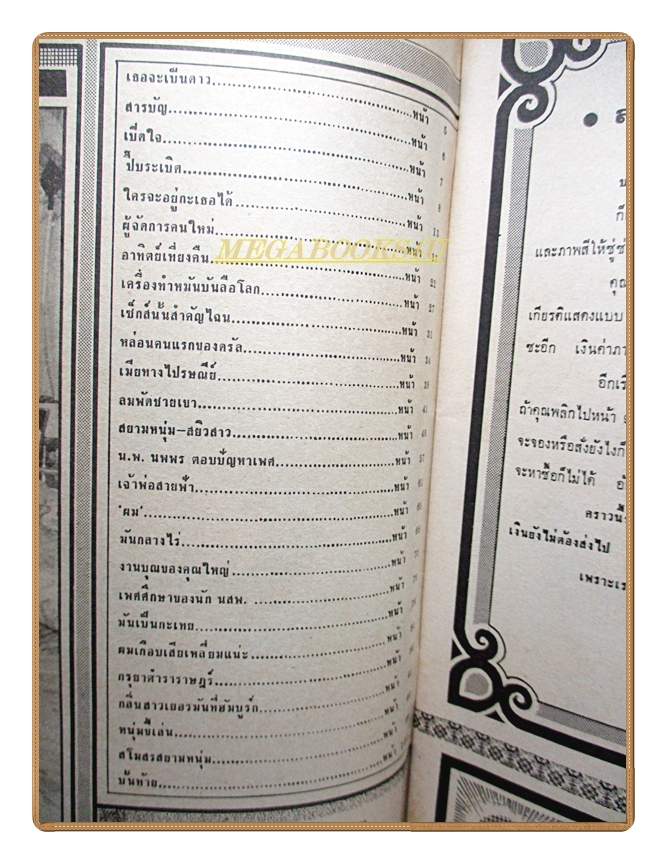 เธอจะเป็นดาว........หน้า 5
สารบัญ........หน้า 6
เปิดใจ........หน้า 7
ปี๊บระเบิด........หน้า 8
ใครจะอยู่กะเธอได้........หน้า 10
ผู้จัดการคนใหม่........หน้า
อาทิตย์เที่ยงคืน........หน้า 22
เครื่องทำหมันบันลือโลก........หน้า 27
เซ็กส์นั้นสำคัญไฉน........หน้า 31
หล่อนคนแรกของดรัล........หน้า 34
เมียทางไปรษณีย์........หน้า 39
ลมพัดชายเขา........หน้า 41
สยามหนุ่ม–สยิวสาว........หน้า
น.พ. นพพร ตอบปัญหาเพศ........หน้า 57
เจ้าพ่อสายฟ้า........หน้า
'ผม'........หน้า
มันกลางไร่........หน้า
งานบุญของคุณใหญ่........หน้า
เพศศึกษาของนัก นสพ. ........หน้า
มันเป็นกะเทย........หน้า
ผมเกือบเสียเหลี่ยมแน่ะ........หน้า
กรุยาตำราราษฎร์........หน้า
กลิ่นสาวเยอรมันที่ฮัมบูร์ก........หน้า
หนุ่มขี้เล่น........หน้า
สโมสรสยามหนุ่ม........หน้า
บั้นท้าย........หน้า
MEGABOOKS
และภาพสีให้
คุณ
เกียรติแสดงแบบ
ซะอีก เงินค่า
ถ้าคุณพลิกไปหน้า
จะจองหรือสั่งยังไงก็
จะหาซื้อก็ไม่ได้
คราวนี้
เงินยังไม่ต้องส่งไป